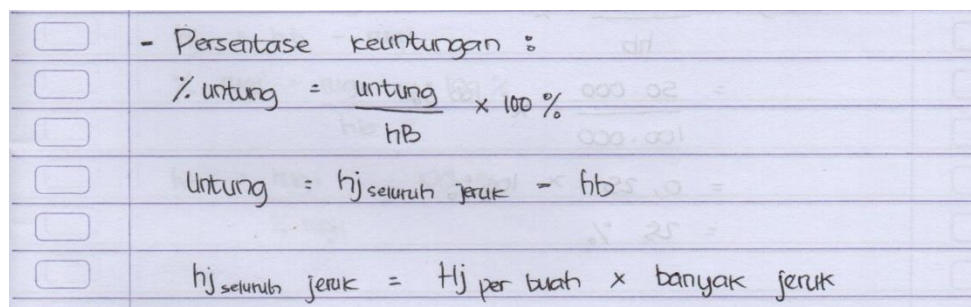 - Persentase keuntungan :
% untung = untung / hB x 100 %
Untung = hj seluruh jeruk - hb
hj seluruh jeruk = Hj per buah x banyak jeruk